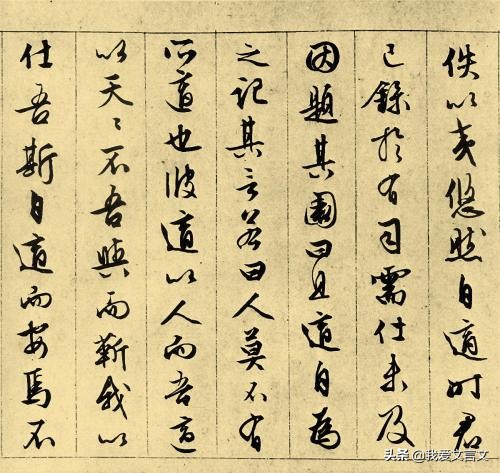 佚以夷悠然自適时君
已録於有司需仕未及
因題其園曰且適自為
之记其言若曰人莫不有
所適也彼適以人而吾適
以天〻不吾與而靳我以
仕吾斯自適而安焉不
头条 @我爱文言文